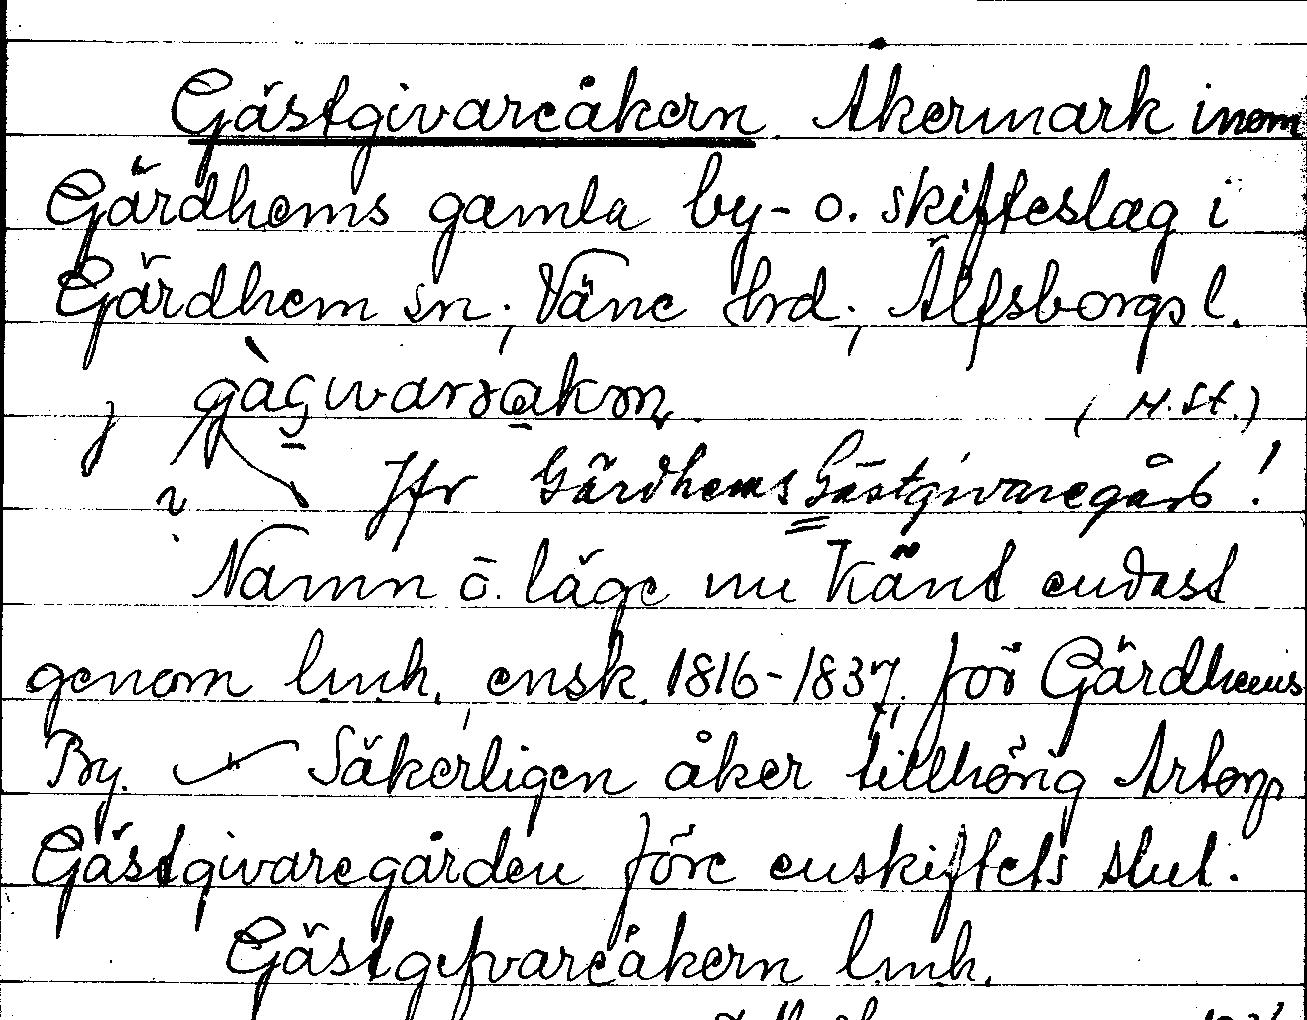 Gästgivareåkern. Åkermark inom
Gärdhems gamla by- o. skifteslag i
Gärdhem sn; Väne hrd; Älfsborgs l.
(H. St.)
Jfr Gärdhems Gästgivaregård!
Namn o. läge nu känt endast
genom lmh, ensk. 1816-1837, för Gärdhems
By. Säkerligen åker tillhörig Artorp
Gästgivaregården före enskiftets slut.
Gästgifvareåkern lmh.